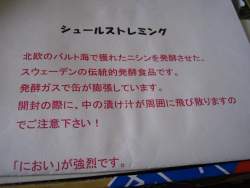 シュールストレミング
北欧のバルト海で獲れたニシンを発酵させた、
スウェーデンの伝統的発酵食品です。
発酵ガスで缶が膨張しています。
開封の際に、中の漬け汁が周囲に飛び散りますの
でご注意下さい！
「におい」が強烈です。